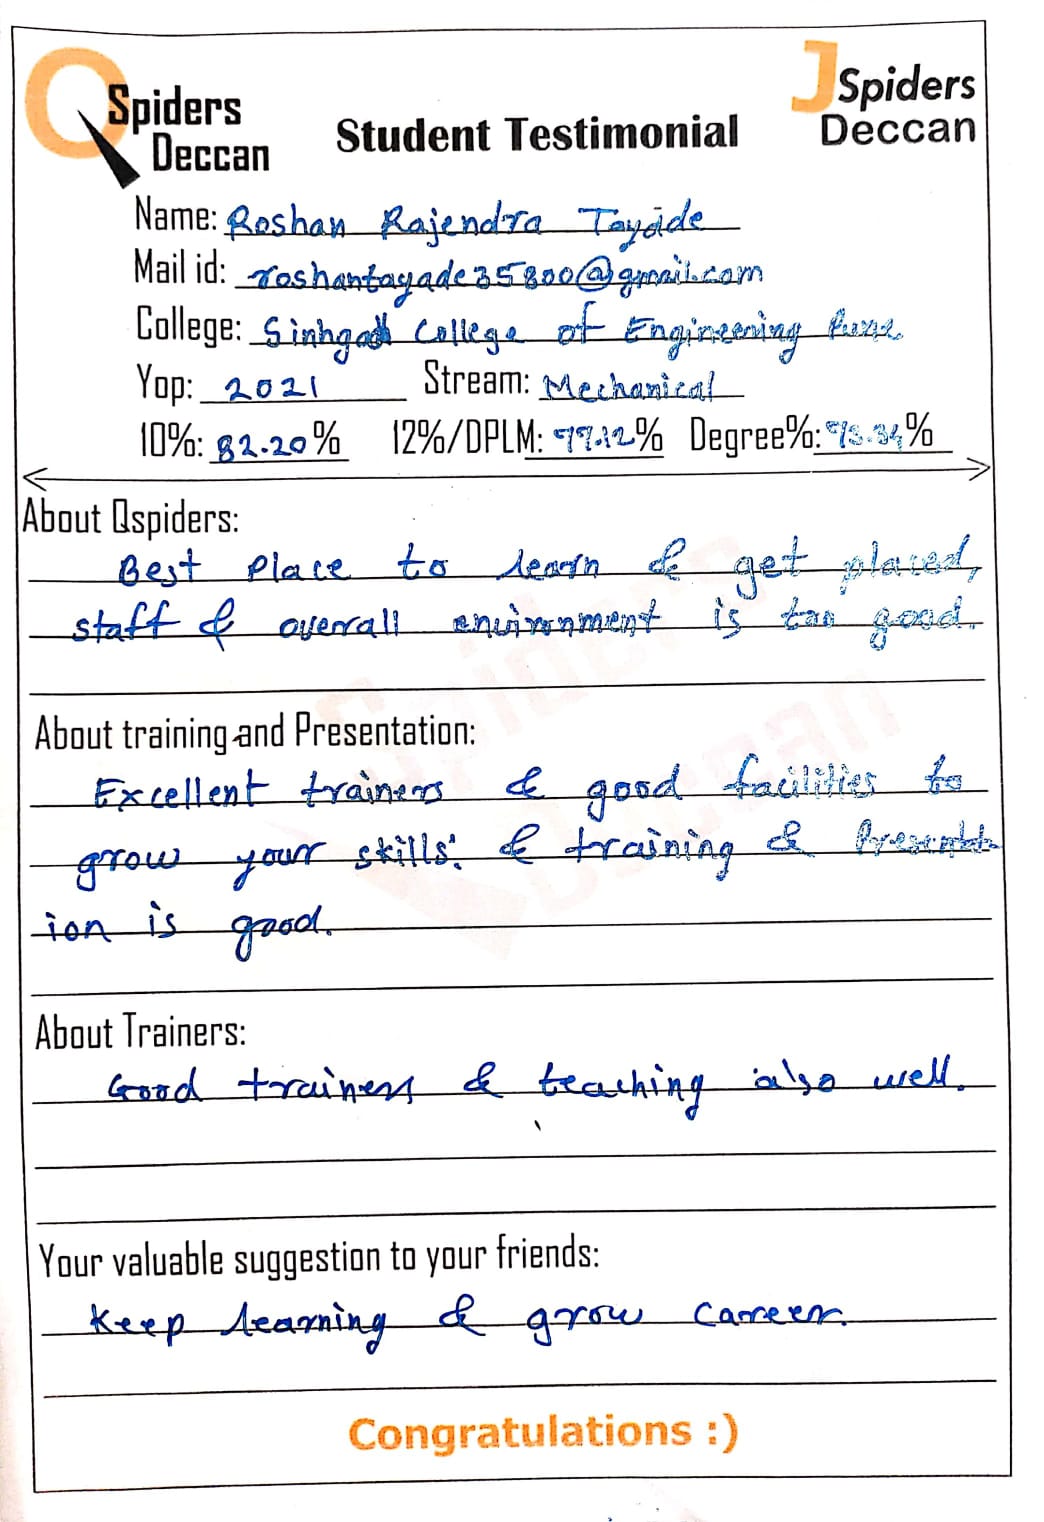 QSpiders
Deccan
Student Testimonial
JSpiders
Deccan
Name: Roshan Rajendra Tayade
Mail id: roshantayade35800@gmail.com
College: Sinhgad College of Engineering Pune
Yop: 2021 Stream: Mechanical
10%: 82.20% 12%/DPLM: 77.12% Degree%: 75.34%
About Qspiders:
Best Place to learn & get placed,
staff & overall environment is too good.
About training and Presentation:
Excellent trainers & good facilities to
grow your skills. & training & Presentat-
ion is good.
About Trainers:
Good trainers & teaching also well.
Your valuable suggestion to your friends:
Keep learning & grow career.
Congratulations :)